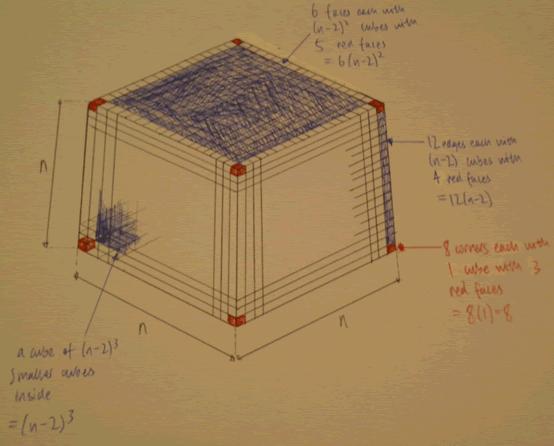 6 faces each with
(n-2)² cubes with
5 red faces
= 6(n-2)²
12 edges each with
(n-2) cubes with
4 red faces
= 12(n-2)
8 corners each with
1 cube with 3
red faces
= 8(1)=8
n
n
n
a cube of (n-2)³
smaller cubes
inside
= (n-2)³